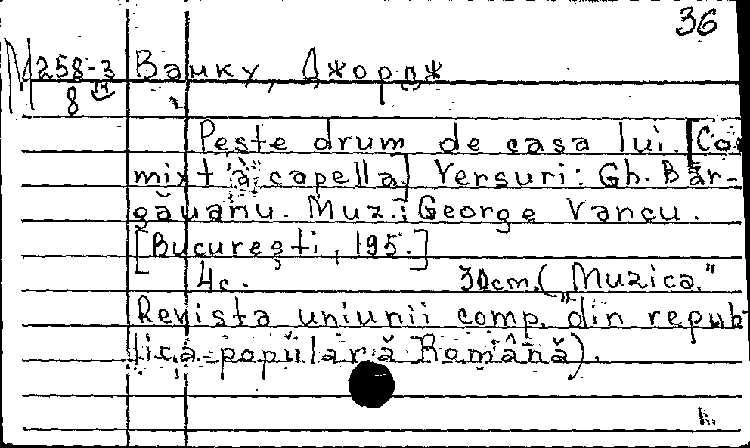 36
M 258-3 Ванку, Джордж
8
Peste drum de casa lui. [Co
mixt à capella] Versuri: Gh. Băr-
găuanu. Muz.: George Vancu.
[Bucureşti, 195.]
4 c. 30 cm. („Muzica."
Revista uniunii comp. din repub
lica populară Română).